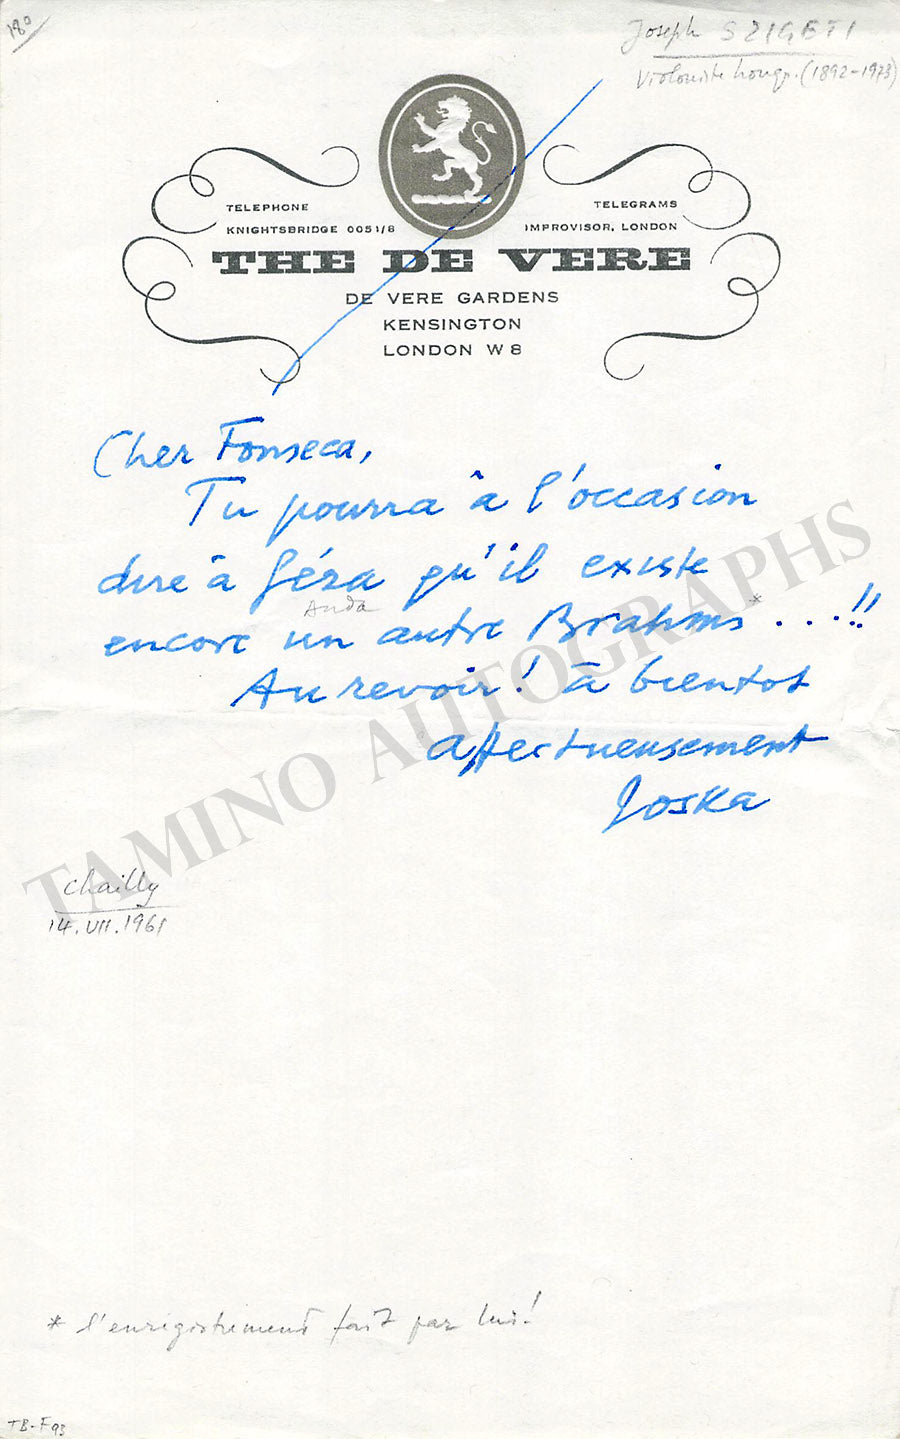 180
Joseph SZIGETI
Violoniste hongr. (1892-1973)
TELEPHONE
KNIGHTSBRIDGE 0051/8
TELEGRAMS
IMPROVISOR, LONDON
THE DE VERE
DE VERE GARDENS
KENSINGTON
LONDON W 8
Cher Fonseca,
Tu pourra à l'occasion
dire à Géza qu'il existe
Anda
encore un autre Brahms * ...!!
Au revoir! à bientot
affectueusement
Joska
Chailly
14.VII.1961
* l'enregistrement fait par lui!
TB-F93
TAMINO AUTOGRAPHS